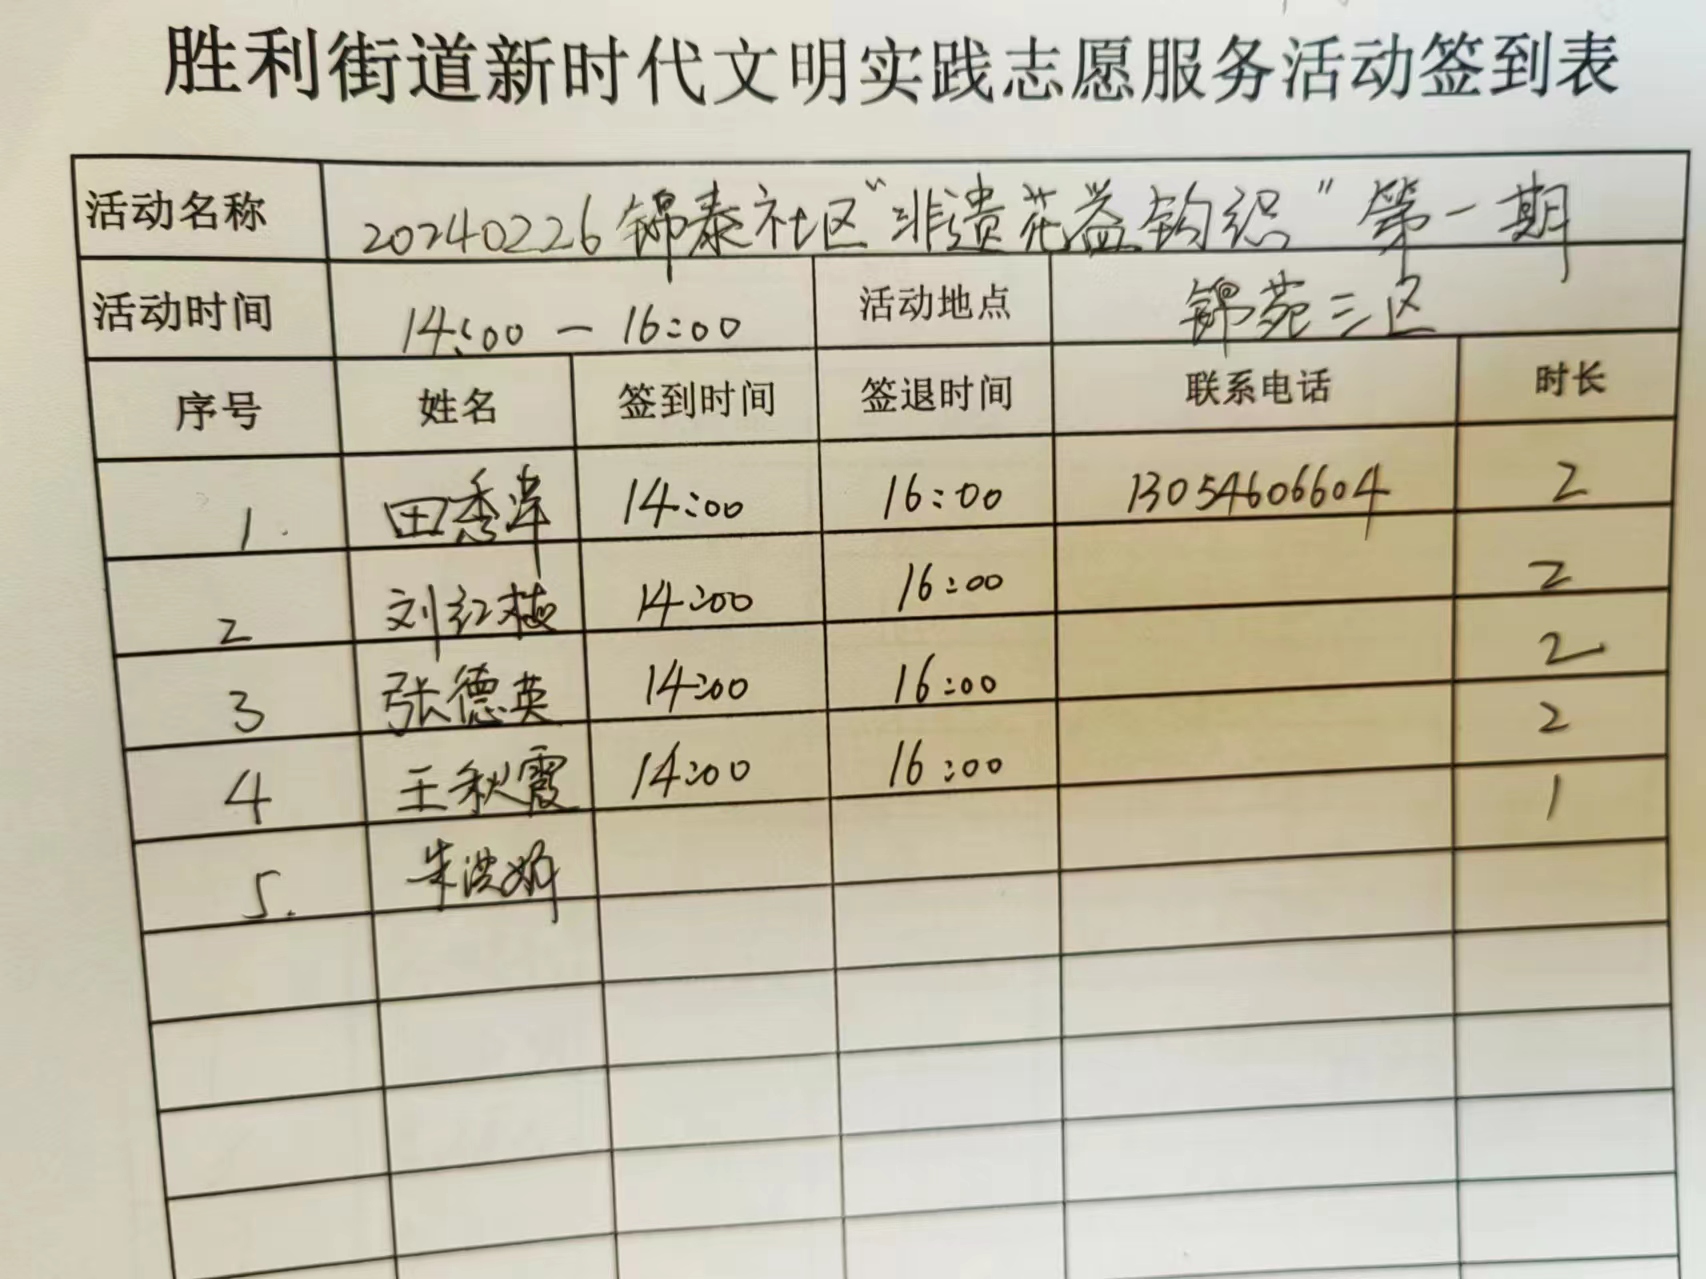 胜利街道新时代文明实践志愿服务活动签到表
活动名称 20240226锦泰社区"非遗花益钩织"第一期
活动时间 14:00 — 16:00 活动地点 锦苑三区
序号 姓名 签到时间 签退时间 联系电话 时长
1. 田秀 14:00 16:00 13054606604 2
2 刘红梅 14:00 16:00 2
3 张德英 14:00 16:00 2
4 王秋霞 14:00 16:00 2
5. 朱洪娇 1